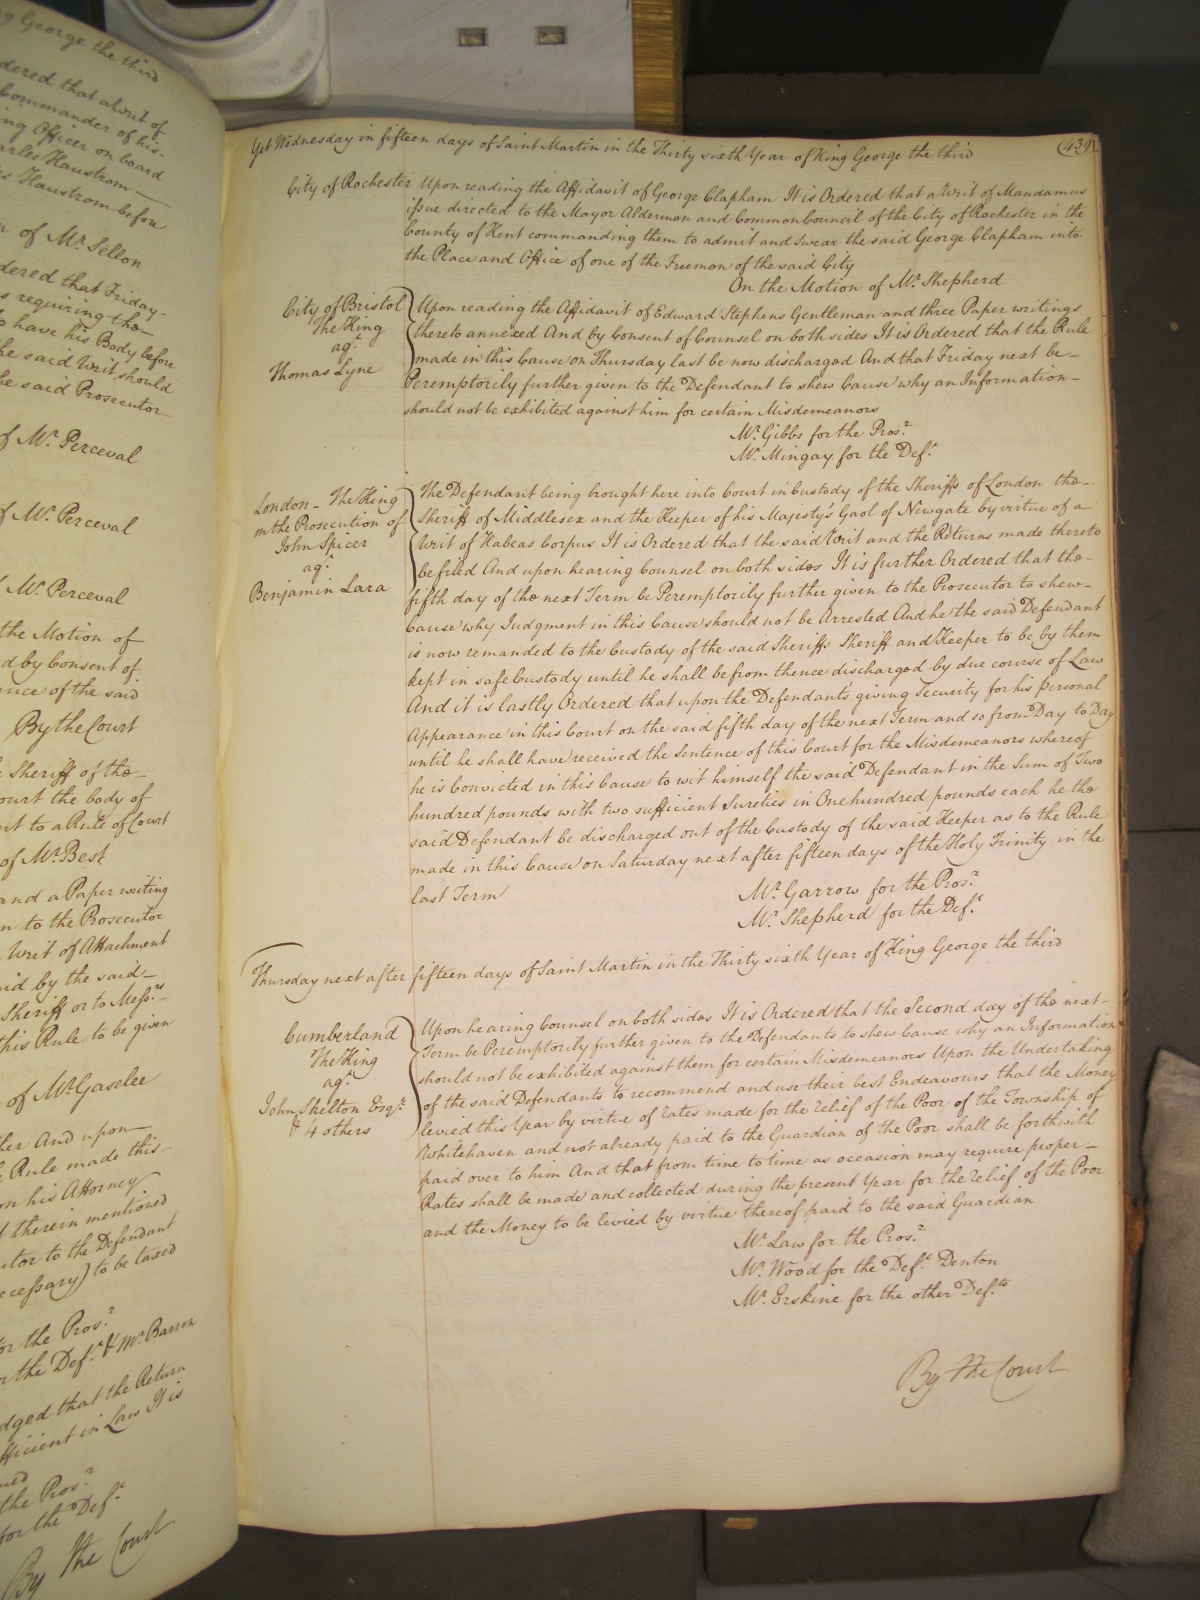 g George the third
dered that a Writ of
Commander of his
ing Officer on board
arles Haustrom
s Haustrom before
of Mr. Sellon
dered that Friday
s requiring the
to have his Body before
he said Writ should
he said Prosecutor
of Mr. Perceval
of Mr. Perceval
Mr. Perceval
the Motion of
d by Consent of
ence of the said
By the Court
Sheriff of the
ourt the body of
nt to a Rule of Court
of Mr. Best
and a Paper writing
n to the Prosecutor
Writ of Attachment
aid by the said
Sheriff or to Messrs.
this Rule to be given
of Mr. Gaselee
ther And upon
Rule made this
on his Attorney
d therein mentioned
utor to the Defendant
ecessary) to be taxed
or the Pros.r
r the Def.t & Mr. Barrow
dged that the Return
fficient in Law It is
the Pros.r
for the Def.t
By the Court
Yet Wednesday in fifteen days of Saint Martin in the Thirty sixth Year of King George the third
(439)
City of Rochester Upon reading the Affidavit of George Clapham It is Ordered that a Writ of Mandamus
issue directed to the Mayor Aldermen and Common Council of the City of Rochester in the
County of Kent commanding them to admit and swear the said George Clapham into
the Place and Office of one of the Freemen of the said City
On the Motion of Mr. Shepherd
City of Bristol Upon reading the Affidavit of Edward Stephens Gentleman and three Paper writings
The King thereto annexed And by Consent of Counsel on both sides It is Ordered that the Rule
agt. made in this Cause on Thursday last be now discharged And that Friday next be
Thomas Lyne Peremptorily further given to the Defendant to shew Cause why an Information
should not be exhibited against him for certain Misdemeanors
Mr. Gibbs for the Pros.r
Mr. Mingay for the Def.t
London - The King The Defendant being brought here into Court in Custody of the Sheriffs of London the
on the Prosecution of Sheriff of Middlesex and the Keeper of his Majesty's Gaol of Newgate by virtue of a
John Spicer Writ of Habeas Corpus It is Ordered that the said Writ and the Returns made thereto
agt. be filed And upon hearing Counsel on both sides It is further Ordered that the
Benjamin Lara fifth day of the next Term be Peremptorily further given to the Prosecutor to shew
Cause why Judgment in this Cause should not be Arrested And he the said Defendant
is now remanded to the Custody of the said Sheriffs Sheriff and Keeper to be by them
kept in safe Custody until he shall be from thence discharged by due course of Law
And it is lastly Ordered that upon the Defendants giving Security for his personal
Appearance in this Court on the said fifth day of the next Term and so from Day to Day
until he shall have received the Sentence of this Court for the Misdemeanors whereof
he is Convicted in this Cause to wit himself the said Defendant in the Sum of Two
hundred pounds with two sufficient Sureties in One hundred pounds each he the
said Defendant be discharged out of the Custody of the said Keeper as to the Rule
made in this Cause on Saturday next after fifteen days of the Holy Trinity in the
last Term
Mr. Garrow for the Pros.r
Mr. Shepherd for the Def.t
Thursday next after fifteen days of Saint Martin in the Thirty sixth Year of King George the third
Cumberland Upon hearing Counsel on both sides It is Ordered that the Second day of the next
The King Term be Peremptorily further given to the Defendants to shew Cause why an Information
agt. should not be exhibited against them for certain Misdemeanors Upon the Undertaking
John Skelton Esqr. of the said Defendants to recommend and use their best Endeavours that the Money
& 4 others levied this Year by virtue of Rates made for the relief of the Poor of the Township of
Whitehaven and not already paid to the Guardian of the Poor shall be forthwith
paid over to him And that from time to time as occasion may require proper
Rates shall be made and collected during the present Year for the relief of the Poor
and the Money to be levied by virtue thereof paid to the said Guardian
Mr. Law for the Pros.r
Mr. Wood for the Def.t Denton
Mr. Erskine for the other Def.ts
By the Court